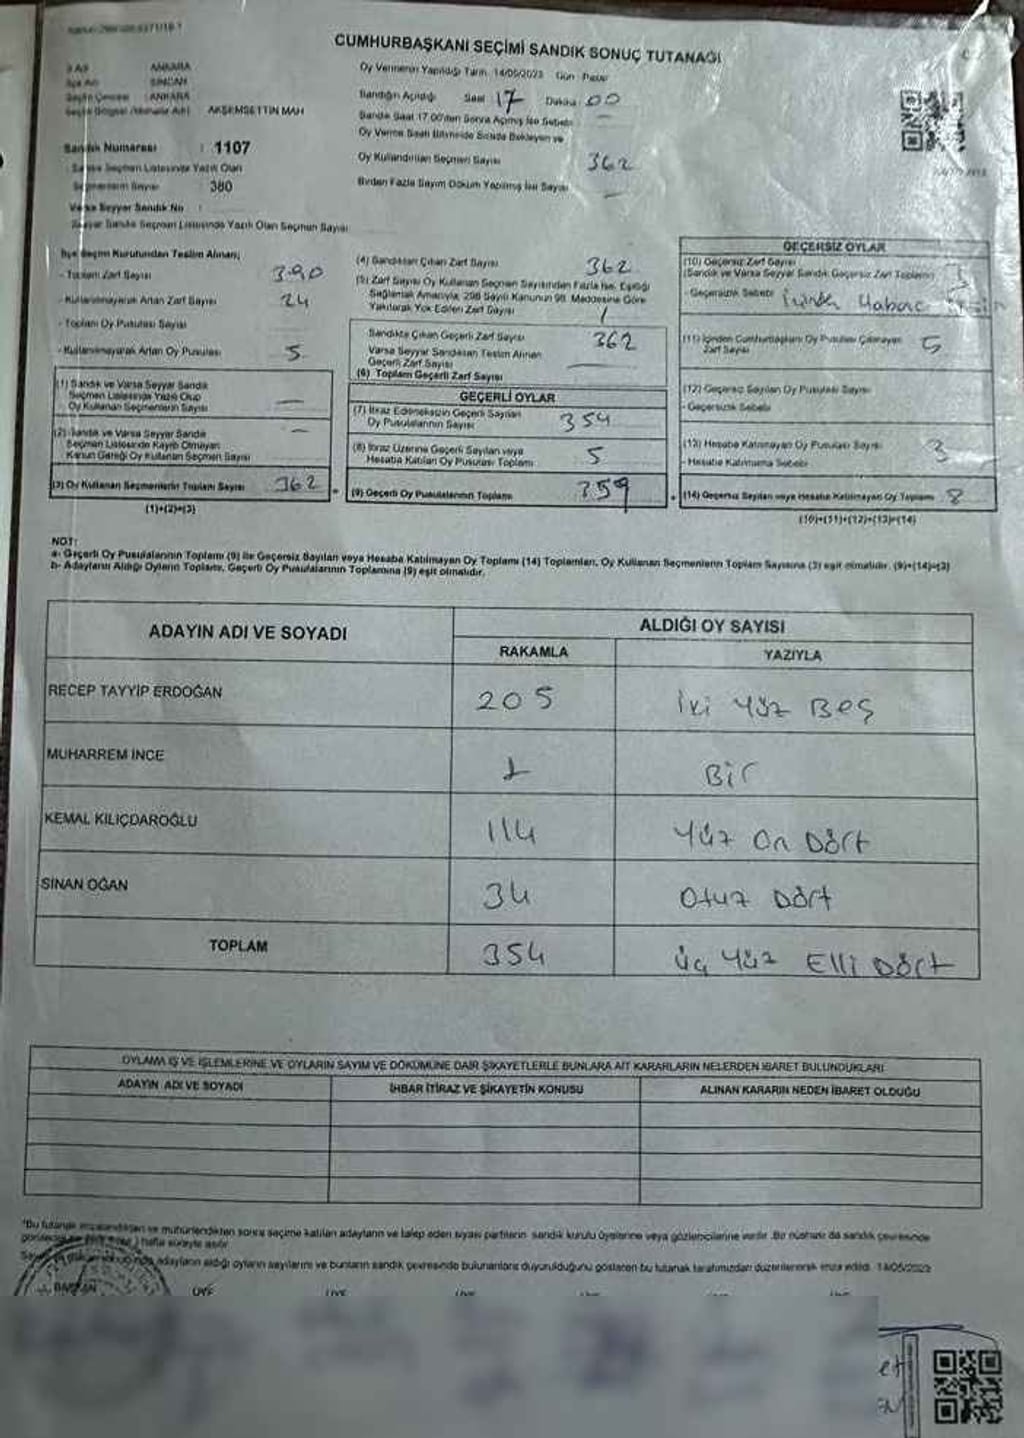 CUMHURBAŞKANI SEÇİMİ SANDIK SONUÇ TUTANAĞI
ANKARA
SİNCAN
ANKARA
AKŞEMSETTİN MAH
Oy Vermenin Yapıldığı Tarih 14/05/2023 Gün Pazar
Sandığın Açıldığı Saat 17 Dakika 00
Sandık Saat 17.00'den Sonra Açılmış İse Sebebi
Oy Verme Saati Bitiminde Sırada Bekleyen ve
Oy Kullandırılan Seçmen Sayısı 362
Birden Fazla Sayım Döküm Yapılmış İse Sayısı —
Sandık Numarası : 1107
Sandık Seçmen Listesinde Yazılı Olan
Seçmenlerin Sayısı 380
Varsa Seyyar Sandık No :
Seyyar Sandık Seçmen Listesinde Yazılı Olan Seçmen Sayısı
İlçe Seçim Kurulundan Teslim Alınan;
- Toplam Zarf Sayısı 390
- Kullanılmayarak Artan Zarf Sayısı 24
- Toplam Oy Pusulası Sayısı
- Kullanılmayarak Artan Oy Pusulası 5
(1) Sandık ve Varsa Seyyar Sandık
Seçmen Listesinde Yazılı Olup
Oy Kullanan Seçmenlerin Sayısı —
(2) Sandık ve Varsa Seyyar Sandık
Seçmen Listesinde Kayıtlı Olmayan
Kanun Gereği Oy Kullanan Seçmen Sayısı —
(3) Oy Kullanan Seçmenlerin Toplam Sayısı 362
(1)+(2)=(3)
(4) Sandıktan Çıkan Zarf Sayısı 362
(5) Zarf Sayısı Oy Kullanan Seçmen Sayısından Fazla İse, Eşitliği
Sağlamak Amacıyla, 298 Sayılı Kanunun 98. Maddesine Göre
Yakılarak Yok Edilen Zarf Sayısı /
Sandıkta Çıkan Geçerli Zarf Sayısı 362
Varsa Seyyar Sandıktan Teslim Alınan
Geçerli Zarf Sayısı —
(6) Toplam Geçerli Zarf Sayısı
GEÇERLİ OYLAR
(7) İtiraz Edilmeksizin Geçerli Sayılan
Oy Pusulalarının Sayısı 354
(8) İtiraz Üzerine Geçerli Sayılan veya
Hesaba Katılan Oy Pusulası Toplamı 5
(9) Geçerli Oy Pusulalarının Toplamı 359
GEÇERSİZ OYLAR
(10) Geçersiz Zarf Sayısı
(Sandık ve Varsa Seyyar Sandık Geçersiz Zarf Toplamı)
- Geçersizlik Sebebi
(11) İçinden Cumhurbaşkanı Oy Pusulası Çıkmayan
Zarf Sayısı 5
(12) Geçersiz Sayılan Oy Pusulası Sayısı
- Geçersizlik Sebebi
(13) Hesaba Katılmayan Oy Pusulası Sayısı 3
- Hesaba Katılmama Sebebi
(14) Geçersiz Sayılan veya Hesaba Katılmayan Oy Toplamı 8
(10)+(11)+(12)+(13)=(14)
NOT:
a- Geçerli Oy Pusulalarının Toplamı (9) ile Geçersiz Sayılan veya Hesaba Katılmayan Oy Toplamı (14) Toplamları, Oy Kullanan Seçmenlerin Toplam Sayısına (3) eşit olmalıdır. (9)+(14)=(3)
b- Adayların Aldığı Oyların Toplamı, Geçerli Oy Pusulalarının Toplamına (9) eşit olmalıdır.
ADAYIN ADI VE SOYADI
ALDIĞI OY SAYISI
RAKAMLA YAZIYLA
RECEP TAYYİP ERDOĞAN 205 İki Yüz Beş
MUHARREM İNCE 1 Bir
KEMAL KILIÇDAROĞLU 114 Yüz On Dört
SİNAN OĞAN 34 Otuz Dört
TOPLAM 354 Üç Yüz Elli Dört
OYLAMA İŞ VE İŞLEMLERİNE VE OYLARIN SAYIM VE DÖKÜMÜNE DAİR ŞİKAYETLERLE BUNLARA AİT KARARLARIN NELERDEN İBARET BULUNDUKLARI
ADAYIN ADI VE SOYADI İHBAR İTİRAZ VE ŞİKAYETİN KONUSU ALINAN KARARIN NEDEN İBARET OLDUĞU
"Bu tutanak imzalandıktan ve mühürlendikten sonra seçime katılan adayların ve talep eden siyasi partilerin sandık kurulu üyelerine veya gözlemcilerine verilir. Bir nüshası da sandık çevresinde
adayların aldığı oyların sayılarını ve bunların sandık çevresinde bulunanlara duyurulduğunu gösteren bu tutanak tarafımızdan düzenlenerek imza edildi. 14/05/2023
BAŞKAN ÜYE ÜYE ÜYE ÜYE ÜYE ÜYE